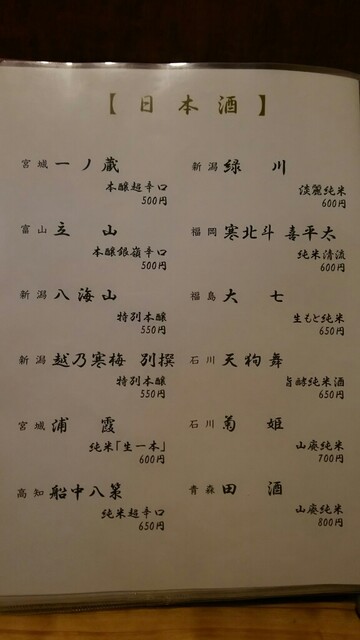 【日本酒】
宮城 一ノ蔵
本醸超辛口
500円
富山 立山
本醸銀嶺辛口
500円
新潟 八海山
特別本醸
550円
新潟 越乃寒梅 別撰
特別本醸
550円
宮城 浦霞
純米「生一本」
600円
高知 船中八策
純米超辛口
650円
新潟 緑川
淡麗純米
600円
福岡 寒北斗 喜平太
純米清流
600円
福島 大七
生もと純米
650円
石川 天狗舞
旨酵純米酒
650円
石川 菊姫
山廃純米
700円
青森 田酒
山廃純米
800円